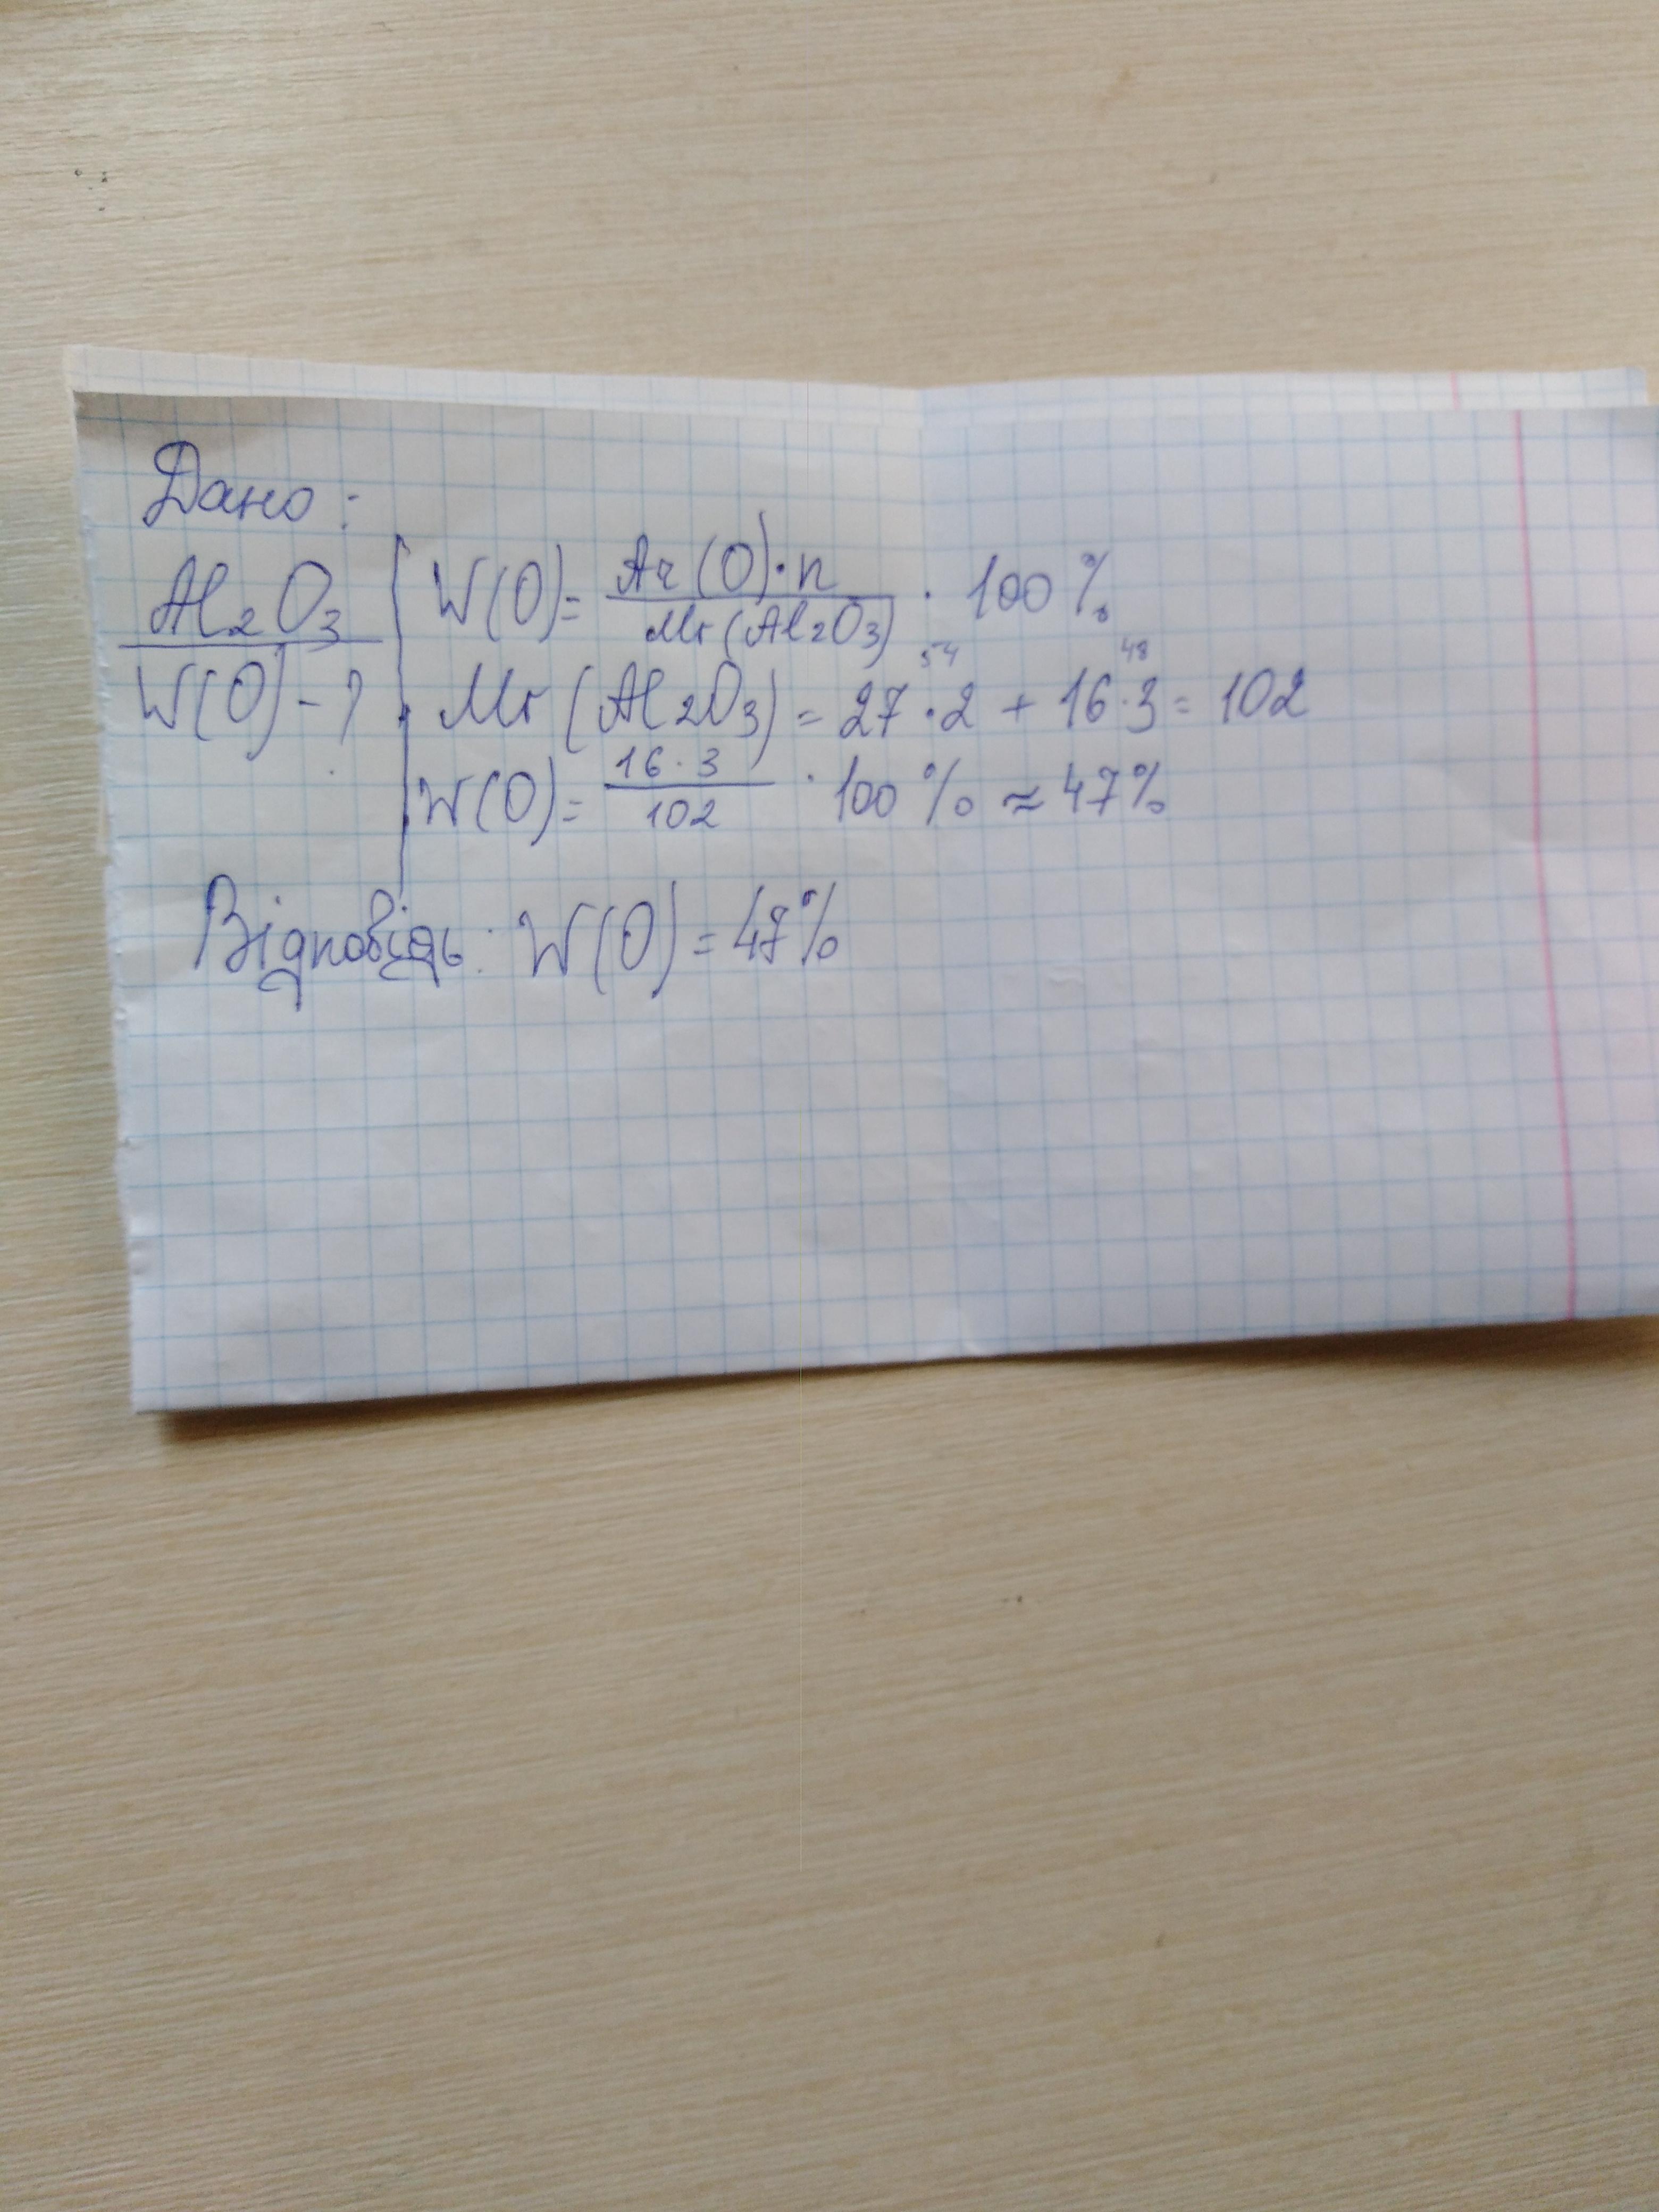 Дано:
Al₂O₃
W(O) - ?
W(O) = Ar(O)·n / Mr(Al₂O₃) · 100%
54 48
Mr(Al₂O₃) = 27·2 + 16·3 = 102
W(O) = 16·3 / 102 · 100% ≈ 47%
Відповідь: W(O) = 47%